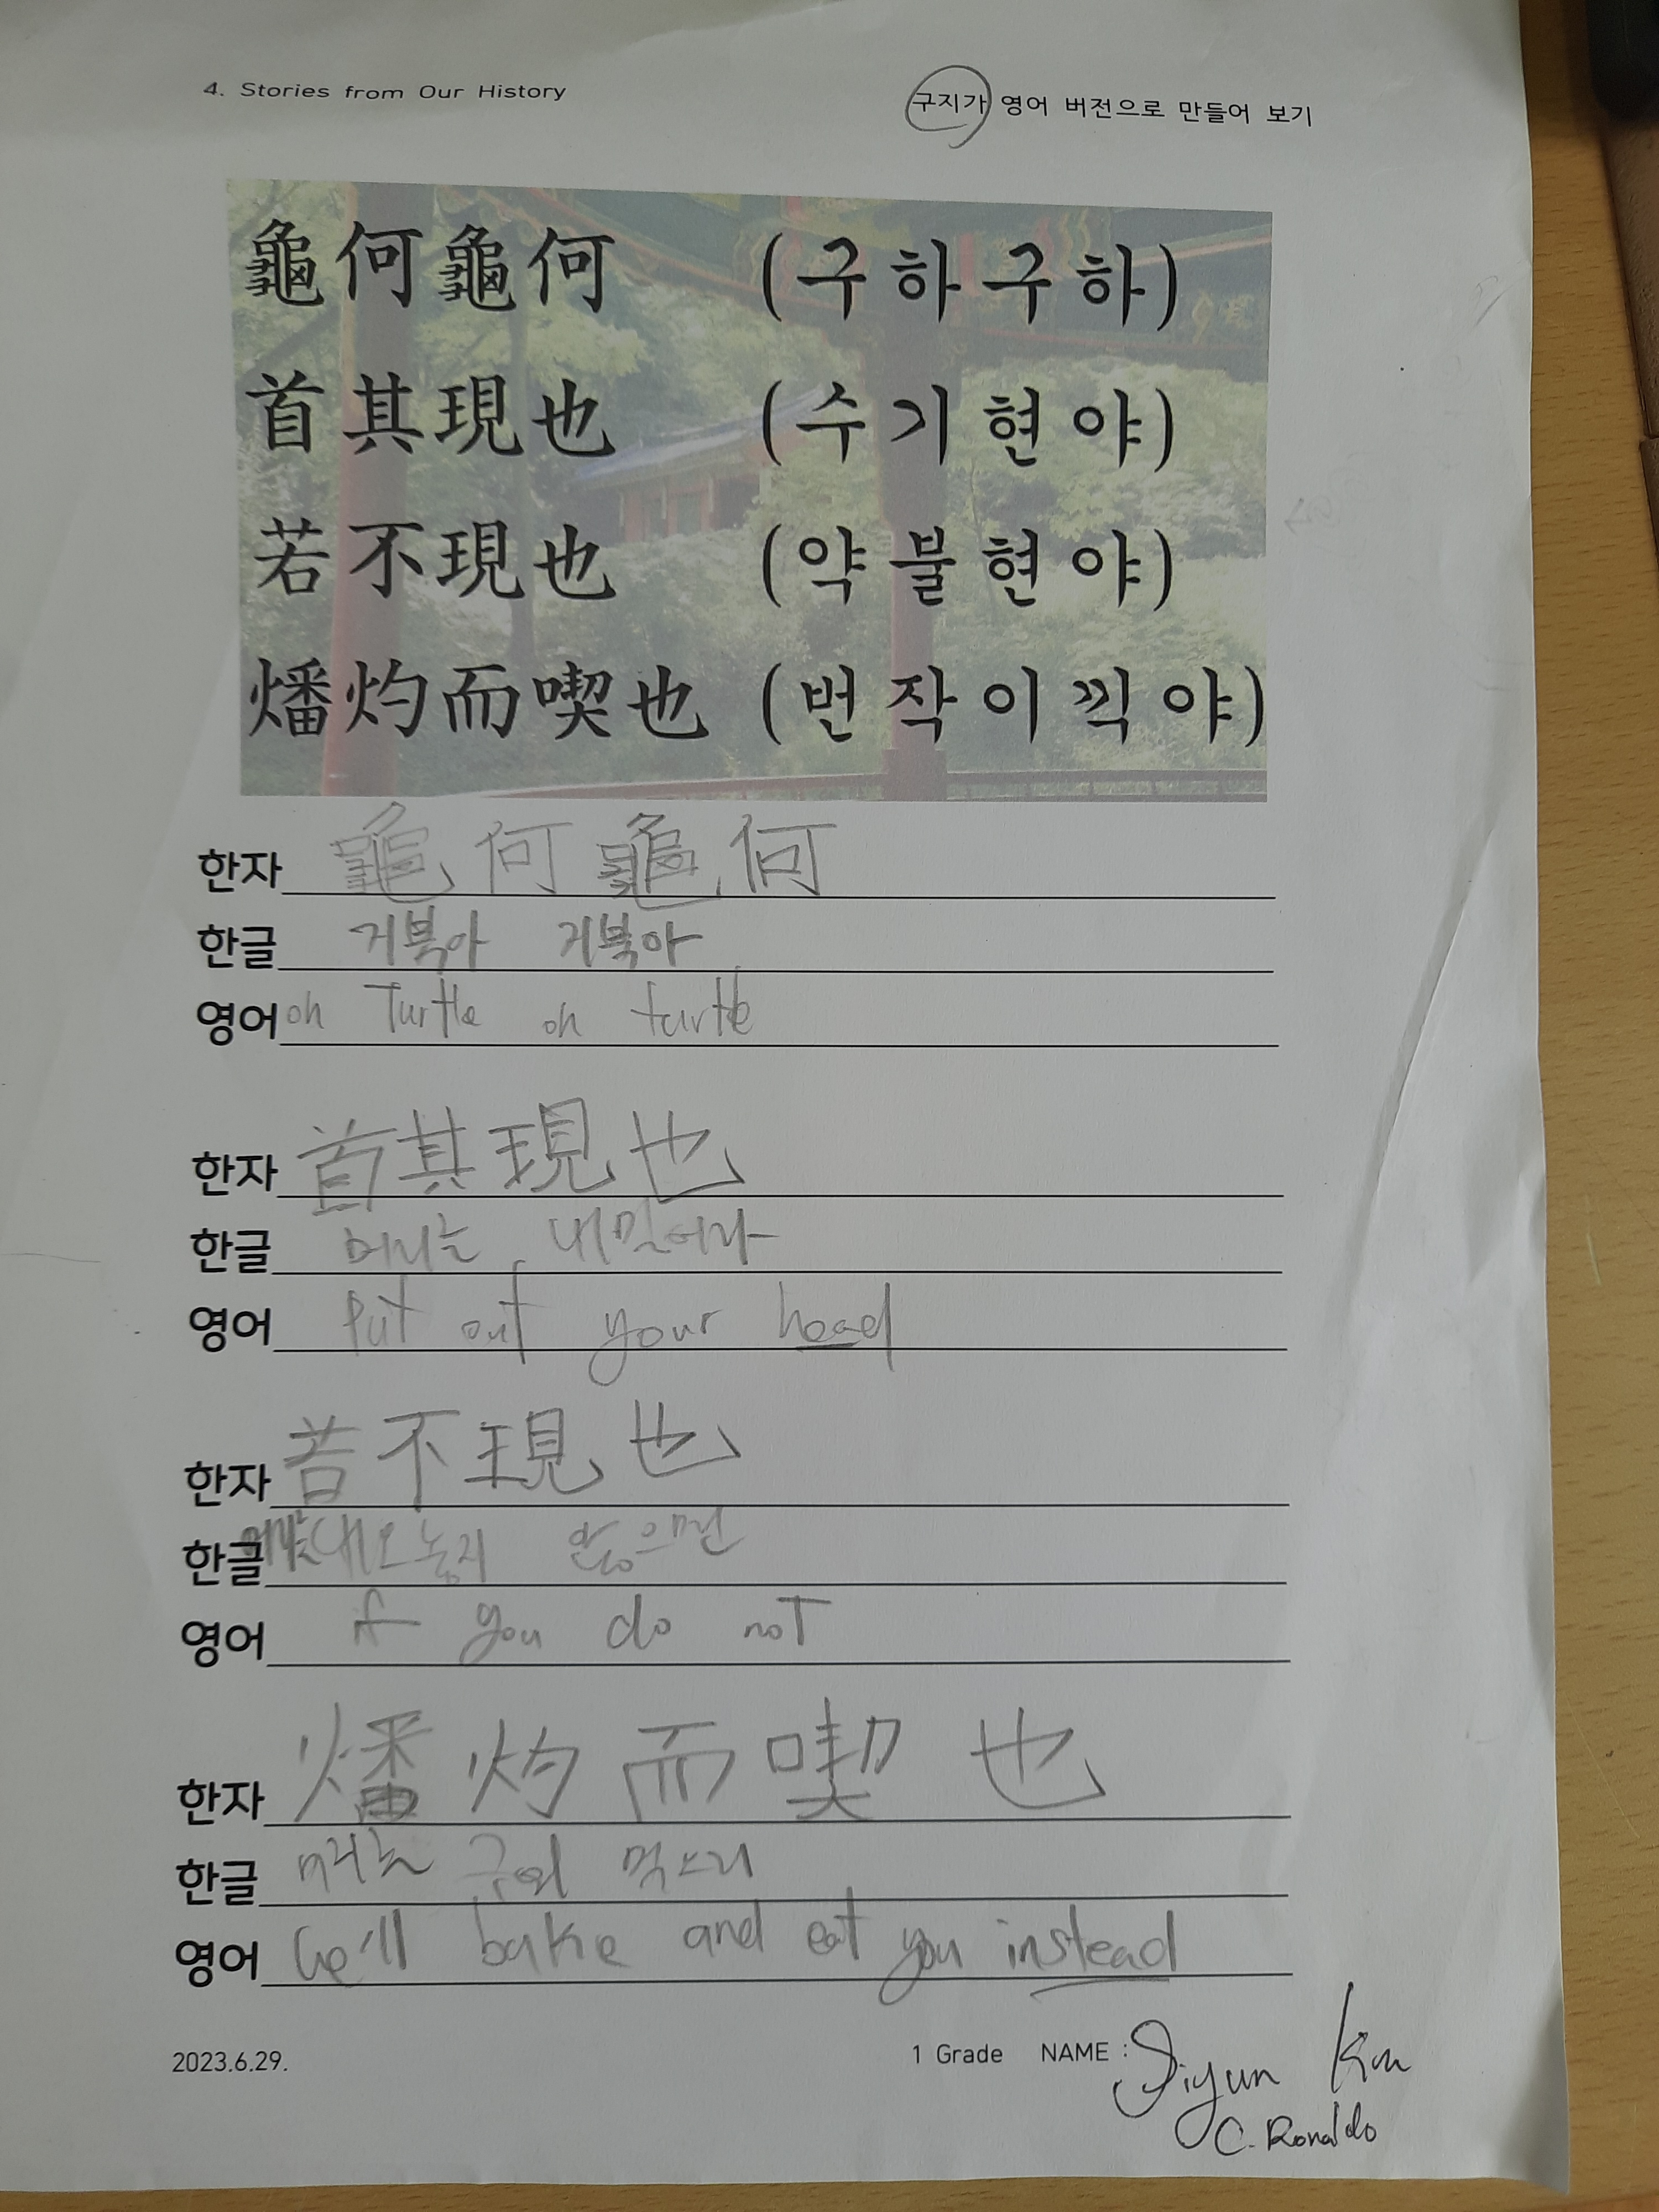 4. Stories from Our History
구지가 영어 버전으로 만들어 보기
龜何龜何 (구하구하)
首其現也 (수기현야)
若不現也 (약불현야)
燔灼而喫也 (번작이끽야)
한자 龜何龜何
한글 거북아 거북아
영어 oh Turtle oh turtle
한자 首其現也
한글 머리는 내밀어라
영어 Put out your head
한자 若不現也
한글 내오놓지 않으면
영어 if you do not
한자 燔灼而喫也
한글 구워 먹으리
영어 we'll bake and eat you instead
2023.6.29.
1 Grade NAME : Siyun Kim
C. Ronaldo